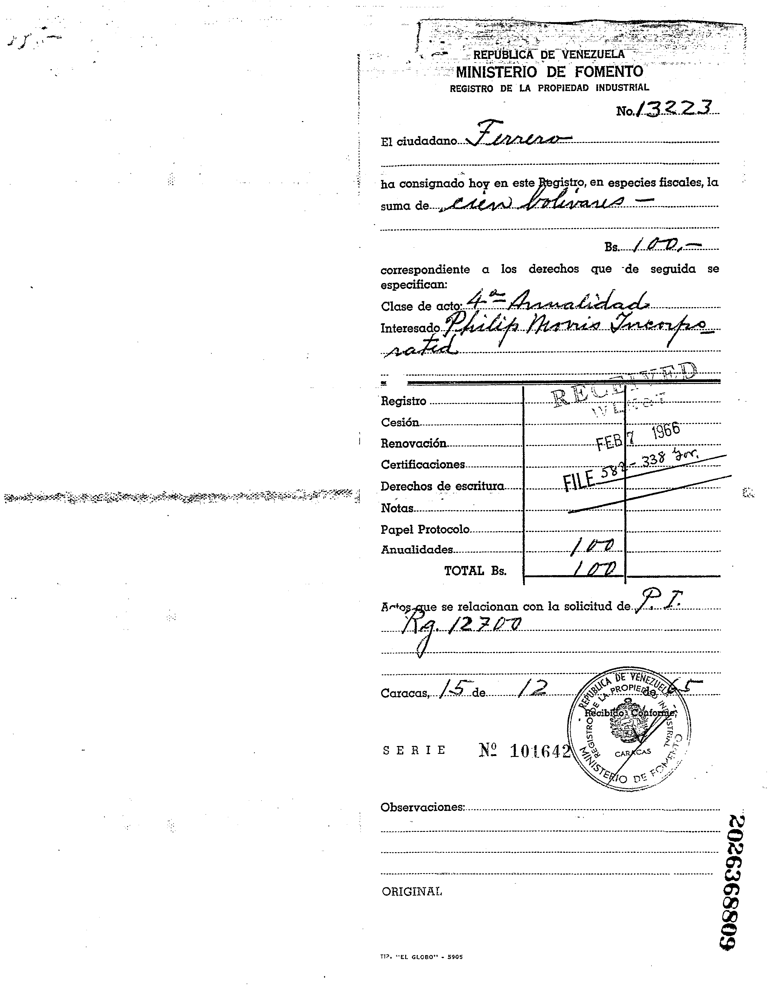 REPUBLICA DE VENEZUELA
MINISTERIO DE FOMENTO
REGISTRO DE LA PROPIEDAD INDUSTRIAL
No. 13223
El ciudadano Ferrero
ha consignado hoy en este Registro, en especies fiscales, la
suma de cien bolivares —
Bs. 100,—
correspondiente a los derechos que de seguida se
especifican:
Clase de acto: 4ª Anualidad
Interesado Philip Morris Incorpo
rated
RECEIVED
Registro
Cesión
FEB 7 1966
Renovación
Certificaciones
FILE 582-338
Derechos de escritura
Notas
Papel Protocolo
Anualidades 100
TOTAL Bs. 100
Actos que se relacionan con la solicitud de P. I.
Rg. 12700
Caracas, 15 de 12 de 65
REPUBLICA DE VENEZUELA
REGISTRO DE LA PROPIEDAD INDUSTRIAL
Recibido Conforme,
CARACAS
MINISTERIO DE FOMENTO
SERIE Nº 101642
Observaciones:
ORIGINAL
TIP. "EL GLOBO" - 5905
2026368809